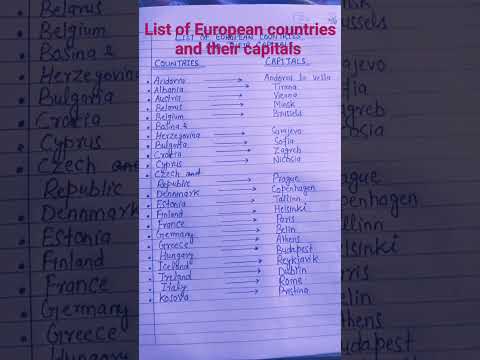 List of European countries
and their capitals
LIST OF EUROPEAN COUNTRIES
COUNTRIES CAPITALS
Andorra → Andorra la vella
Albania → Tirana
Austria → Vienna
Belarus → Minsk
Belgium → Brussels
Basina &
Herzegovina → Sarajevo
Bulgaria → Sofia
Croatia → Zagreb
Cyprus → Nichosia
Czech and
Republic → Prague
Dennmark → Copenhagen
Estonia → Tallinn
Finland → Helsinki
France → Paris
Germany → Belin
Greece → Athens
Hungary → Budapest
Iceland → Reykjavik
Ireland → Dublin
Italy → Rome
Kosova → Pristina
Belarus
Belgium
Basina &
Herzegovina
Bulgaria
Croatia
Cyprus
Czech and
Republic
Dennmark
Estonia
Finland
France
Germany
Greece
Hungary